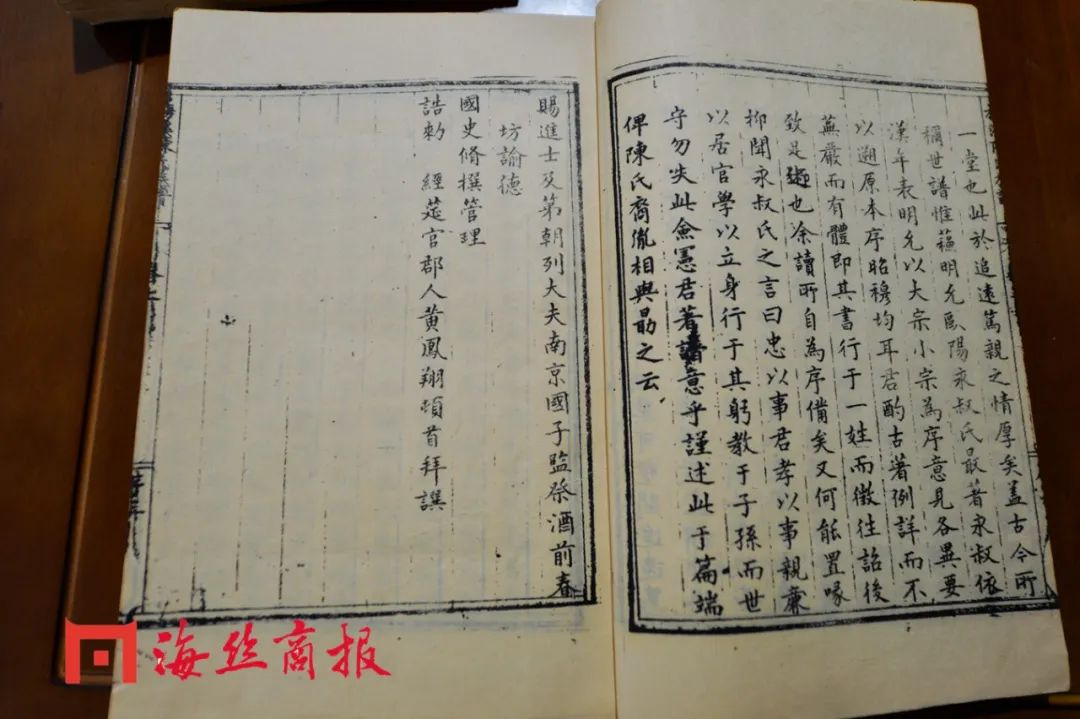 一堂也此於追遠篤親之情厚矣蓋古今所
稱世譜惟蘓明允歐陽永叔氏最著永叔依
漢年表明允以大宗小宗為序意見各異要
以遡原本序昭穆均耳君酌古著例詳而不
蕪嚴而有體即其書行于一姓而徵往詔後
致是
也余讀所自為序備矣又何能置喙
抑聞永叔氏之言曰忠以事君孝以事親廉
以居官學以立身行于其躬教于子孫而世
守勿失此僉憲君著譜意乎謹述此于篇端
俾陳氏裔胤相與勗之云
賜進士及第朝列大夫南京國子監祭酒前春
坊諭德
國史脩撰管理
誥勅 經筵官郡人黄鳳翔頓首拜譔
海丝商报